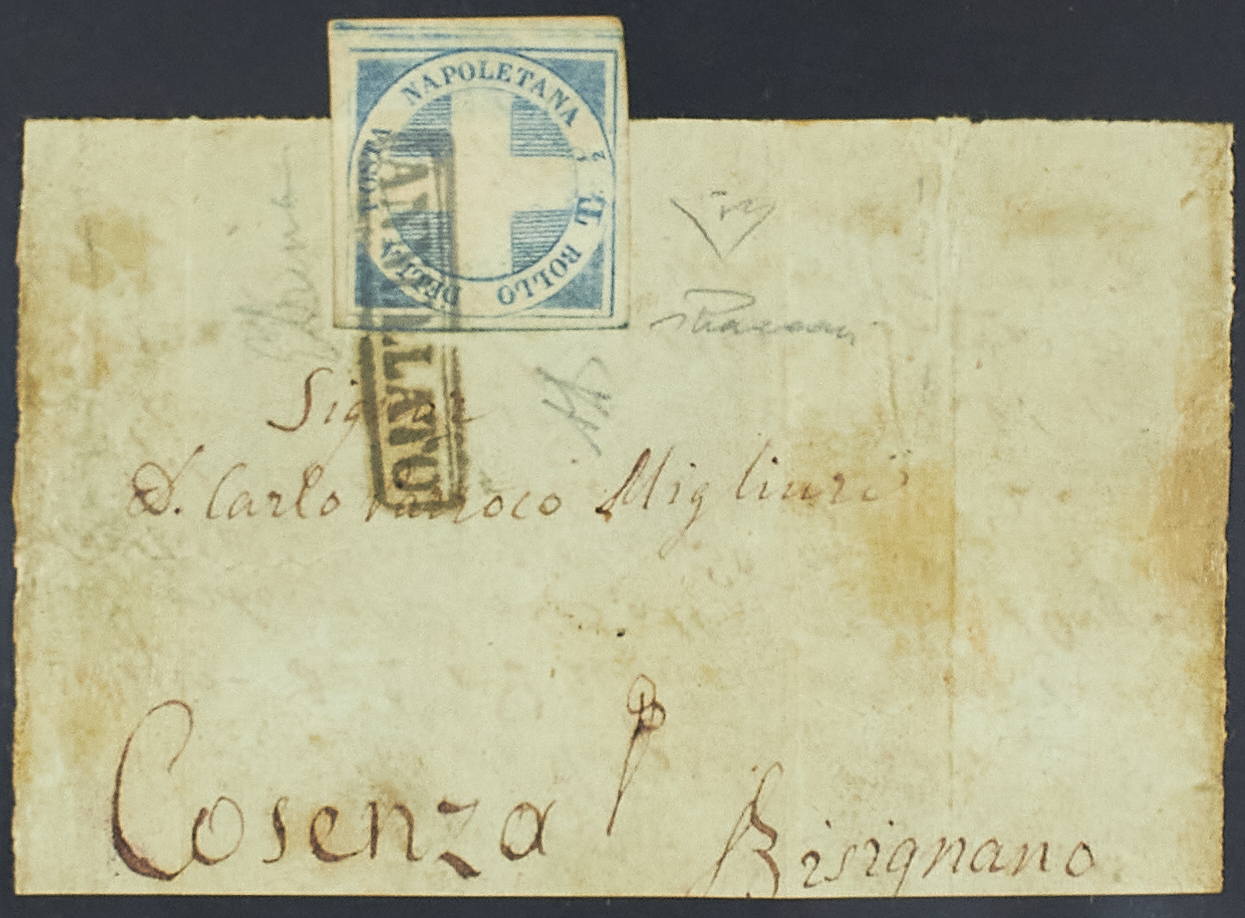 BOLLO DELLA POSTA NAPOLETANA ½ T.
ANNULLATO
Signor
D. Carlo Migliuri
Cosenza P
Bisignano